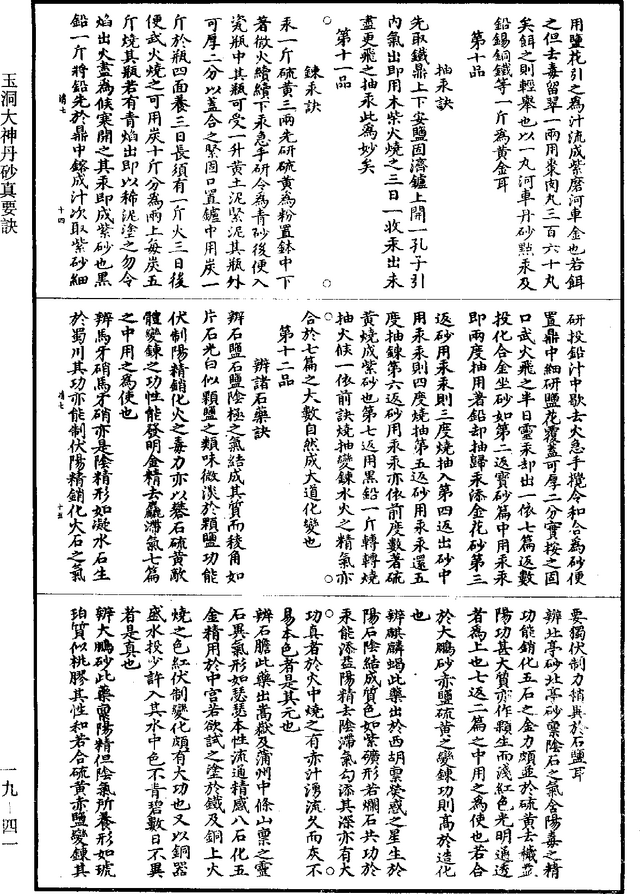 用鹽花引之為汁流成紫磨河車金也若餌
之但去毒留翠一兩用棗肉丸三百六十丸
矣餌之則輕舉也以一丸河車丹砂點汞及
鉛錫銅鐵等一斤為黃金耳
第十品
抽汞訣
先取鐵鼎上下安鹽固濟鑪上開一孔子引
內氣出即用本柴火燒之三日一收汞出未
盡更飛之抽汞此為妙矣
第十一品
鍊汞訣
汞一斤硫黃三兩先研硫黃為粉置鉢中下
著微火續續下汞急手研令為青砂後便入
瓷瓶中其瓶可受一升黃土泥緊泥其瓶外
可厚二分以蓋合之緊固口置鑪中用炭一
斤於瓶四面養三日長須有一斤火三日後
便武火燒之可用炭十斤分為兩上每炭五
斤燒其瓶若有青焰出即以稀泥塗之勿令
焰出火盡為候寒開之其汞即成紫砂也黑
鉛一斤將鉛先於鼎中鎔成汁次取紫砂細
研投鉛汁中歇去火急手攪令和合為砂便
置鼎中細研鹽花覆蓋可厚二分實按之固
口武火飛之半日靈汞却出一依七篇返數
投化合金坐砂如第二返寶砂篇中用汞汞
即兩度抽用著鉛却抽歸汞添金花砂第三
返砂用汞汞則三度燒抽入第四返出砂中
用汞汞則四度燒抽第五返砂用汞汞還五
度抽鍊第六返砂用汞汞亦依前度數著硫
黃燒成紫砂也第七返用黑鉛一斤轉轉燒
抽火候一依前訣燒抽變鍊水火之精氣亦
合於七篇之大數自然成大道化變也
第十二品
辨諸石藥訣
辨石鹽石鹽陰極之氣結成其質而稜角如
片石光白似顆鹽之類味微淡於顆鹽功能
伏制陽精銷化火之毒力亦以礜石硫黃敵
體變鍊之功性能發明金精去麤滯氣七篇
之中用之為使也
辨馬牙硝馬牙硝亦是陰精形如凝水石生
於蜀川其功亦能制伏陽精銷化火石之氣
要獨伏制力稍異於石鹽耳
辨北亭砂北亭砂稟陰石之氣含陽毒之精
功能銷化五石之金力頗並於硫黃去穢益
陽功甚大質亦作顆生而淺紅色光明通透
者為上也七返二篇之中用之為使也若合
於大鵬砂亦鹽硫黃之變鍊功則高於造化
也
辨麒麟蝎此藥出於西胡稟熒惑之星生於
陽石陰結成質色如紫礦形若爛石共功於
汞能添益陽精去陰滯氣勾添其深亦有大
功真者於火中燒之有赤汁湧流久而灰不
易本色者是其元也
辨石膽此藥出嵩嶽及蒲州中條山稟之靈
石異氣形如瑟瑟本性流通精感八石化五
金精用於中宮若欲試之塗於鐵及銅上火
燒之色紅伏制變化頗有大功也又以銅器
盛水投少許入其水中色不青碧數日不異
者是真也
辨大鵬砂此藥稟陽精但陰氣所養形如琥
珀質似桃膠其性和若合硫黃亦鹽變鍊其
玉洞大神丹砂真要訣
一九－四一